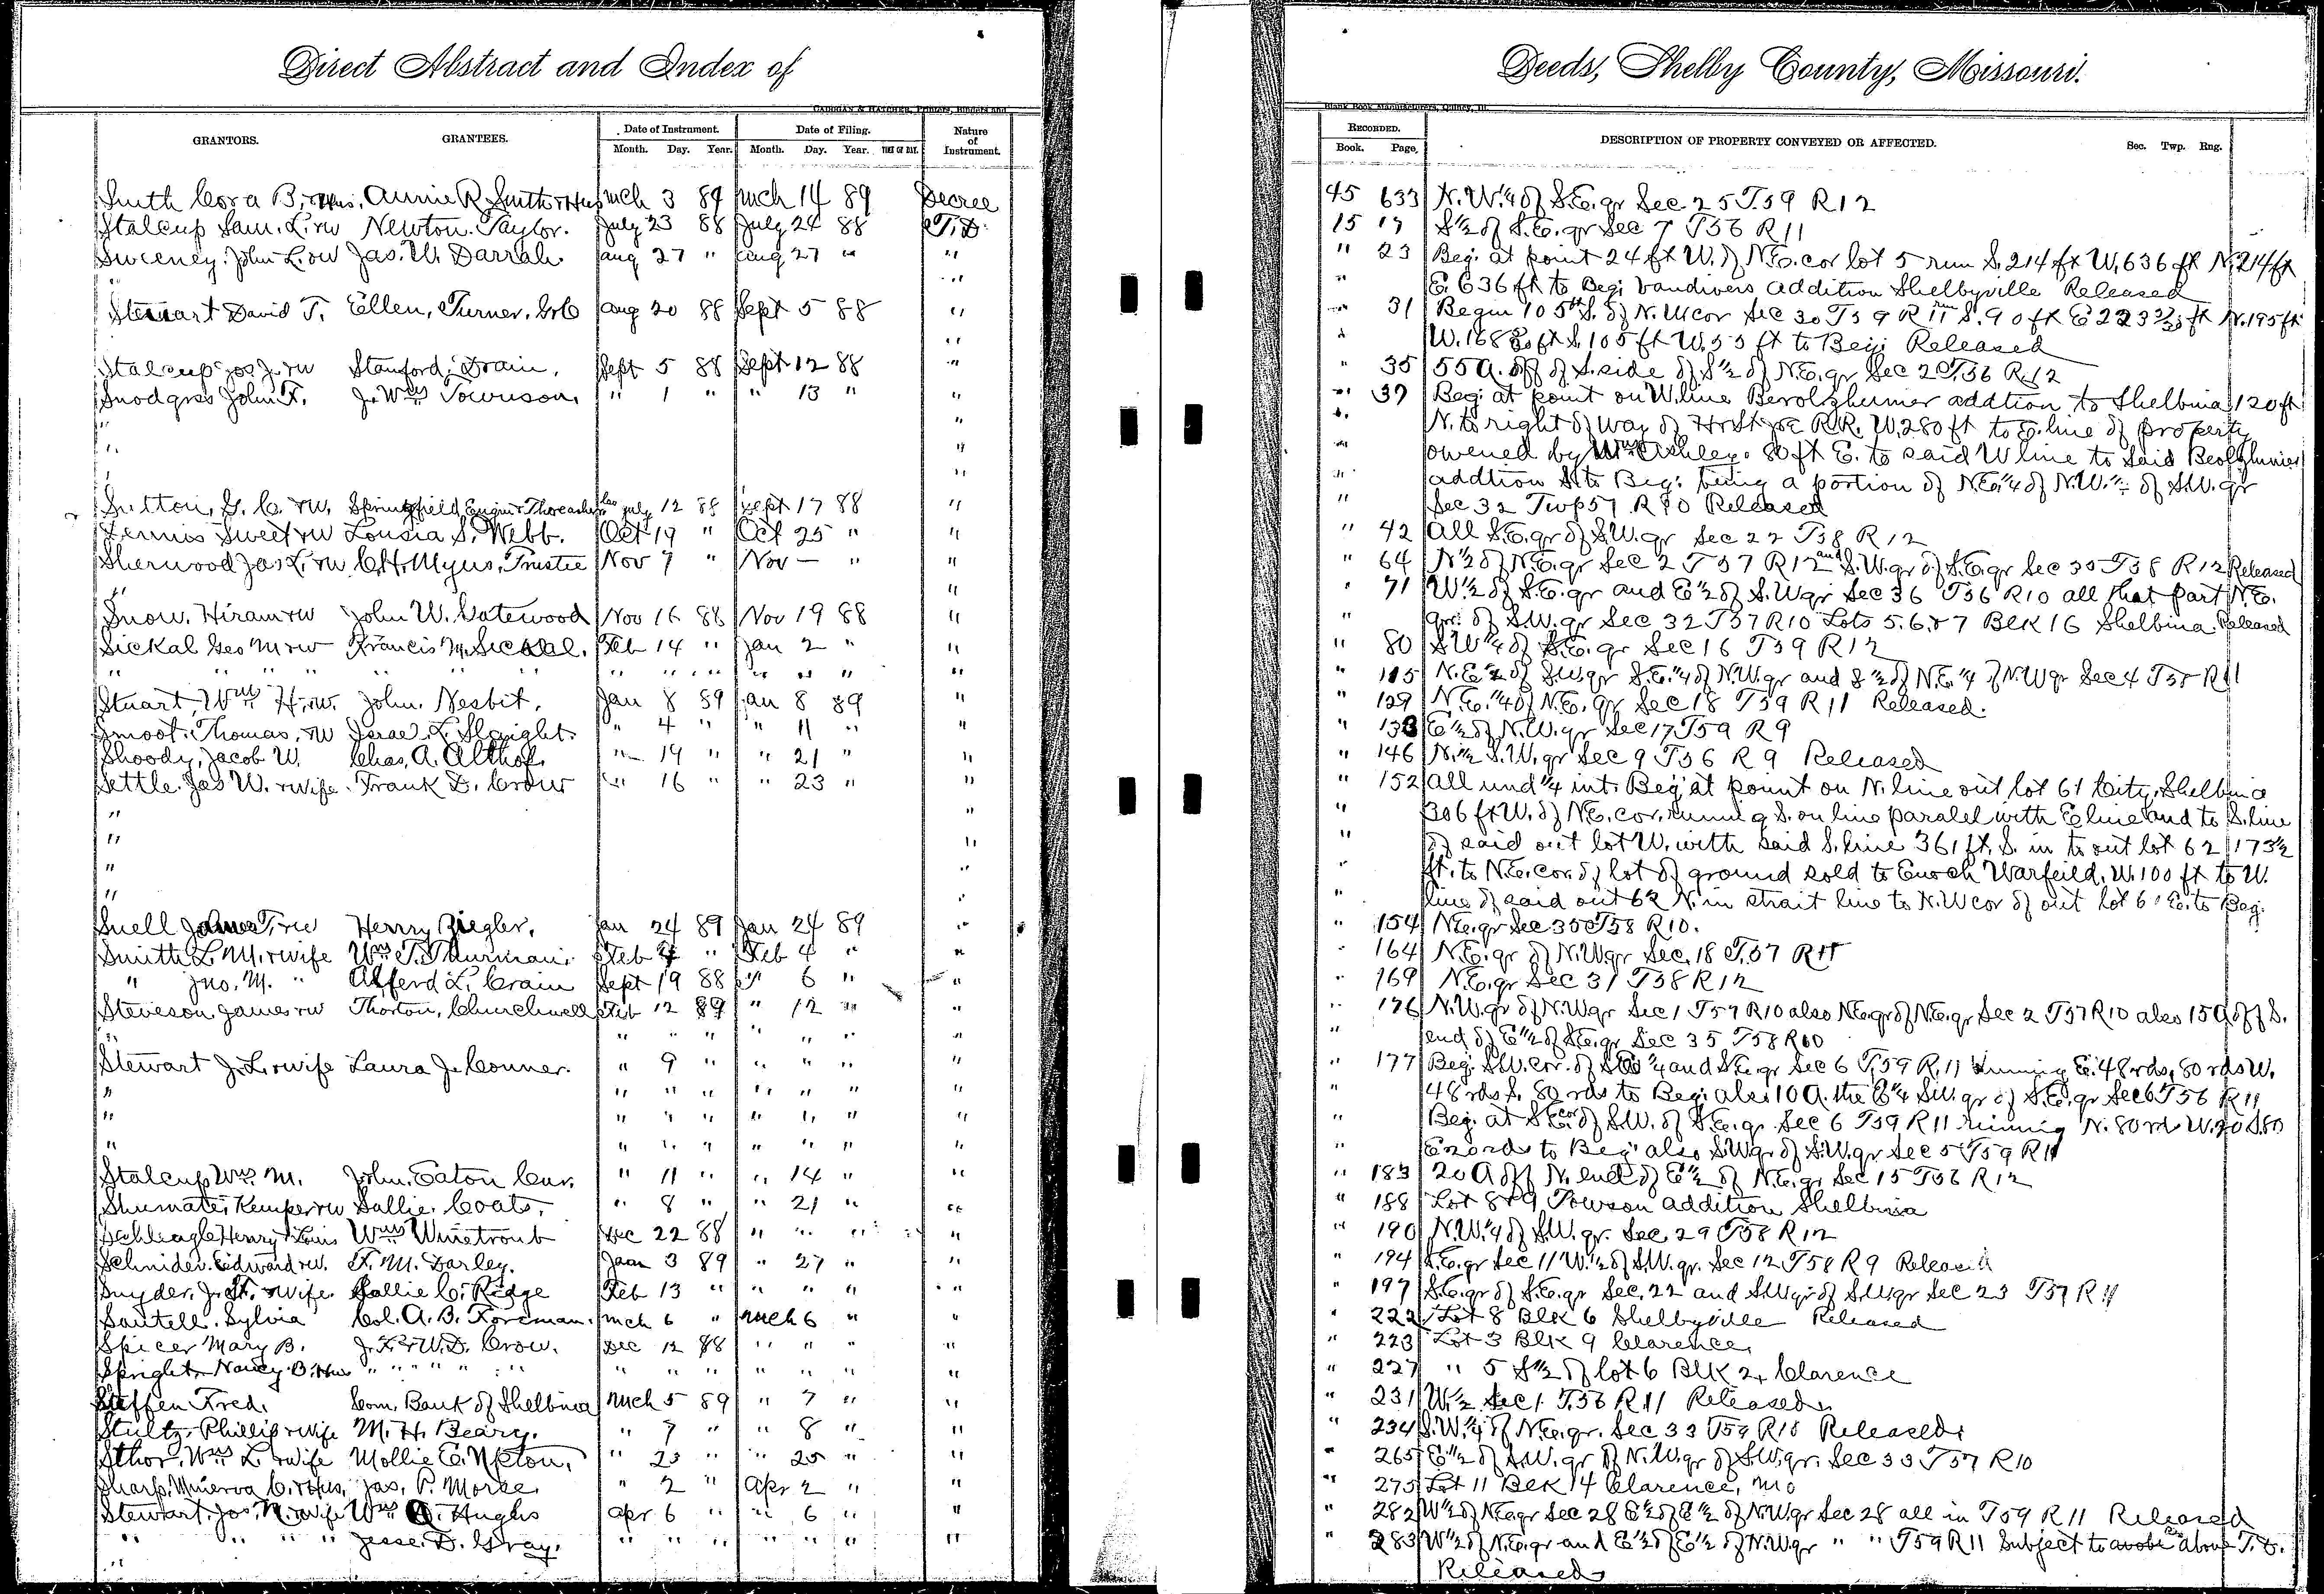 Direct Abstract and Index of
CADOGAN & HATCHER, Printers, Binders and
GRANTORS. GRANTEES. Date of Instrument. Date of Filing. Nature of Instrument.
Month. Day. Year. Month. Day. Year. TIME OF DAY.
Smith Cora B. & Hus. Annie R. Smith & Hus Mch 3 89 Mch 14 89 Decree
Stalcup Sam. L. & w Newton Taylor. July 23 88 July 24 88 T.D.
Sweeney John L. & w Jas. W. Darrah Aug 27 " Aug 27 " "
"
Stewart David T. Ellen Turner, Aug 20 88 Sept 5 88 "
"
Stalcup Jos J. & w Stanford Drain, Sept 5 88 Sept 12 88 "
Snodgrss John F. J. Wms Townson, " 1 " " 13 " "
" "
" "
" "
Sutton, G. C. & w. Springfield Engine & Threasher Co July 12 88 Sept 17 88 "
Tennis Sweet & w Lousia S. Webb. Oct 19 " Oct 25 " "
Sherwood Jas L. & w C.H. Myers, Trustee Nov 7 " Nov — " "
" "
Snow. Hiram & w John W. Gatewood Nov 16 88 Nov 19 88 "
Sickal Geo M & w Francis M. Sickal. Feb 14 " Jan 2 " "
" " " " " " " " " " "
Stuart, Wm H. & w. John Nesbit. Jan 8 89 Jan 8 89 "
Smoot. Thomas, & w Israel L. Slaight. " 4 " " 11 " "
Shoody, Jacob W. Chas, A. Althof. " 19 " " 21 " "
Settle Jas W. & wife. Frank D. Crow " 16 " " 23 " "
" "
" "
" "
" "
Snell James T. & w Henry Ziegler. Jan 24 89 Jan 24 89 "
Smith L. M. & wife Wm T. Thurman. Feb 4 " Feb 4 " "
" Jno. M. " Alferd L. Crain Sept 19 88 " 6 " "
Steveson James & w Thorton, Churchwell Feb 12 89 " 12 " "
" " " " " " " "
Stewart J. L. & wife Laura J. Conner. " 9 " " " " "
" " " " " " " "
" " " " " " " "
" " " " " " " "
Stalcup Wm. M. John Eaton Cur. " 11 " " 14 " "
Shumate, Kemper & w Sallie Coats. " 8 " " 21 " "
Schleagle Henry Louis Wm Winetroub Dec 22 88 " " " "
Schnider. Edward & w. F. M. Darley. Jaan 3 89 " 27 " "
Snyder, J. & wife. Sallie C. Ridge Feb 13 " " " " "
Sawtell. Sylvia Col. A. B. Foreman. Mch 6 " Mch 6 " "
Spicer Mary B. J. L & W. D. Crow. Dec 12 88 " " " "
Spright Nancy B. & Hus " " " " " " " " " " "
Steffen Fred. Com. Bank of Shelbina Mch 5 89 " 7 " "
Stultz. Phillip & wife M. H. Beary. " 7 " " 8 " "
Sthor. Wm L. & wife Mollie E. Upton. " 23 " " 25 " "
Sharp, Minerva C. & Hus. Jas. P. Morse. " 2 " Apr 2 " "
Stewart. Jos. N. & wife Wm Hughs Apr 6 " " 6 " "
" " " " Jesse. D. Gray. " " " " " " "
"
Deeds, Shelby County, Missouri.
Blank Book Manufacturers, Quincy, Ill.
RECORDED. DESCRIPTION OF PROPERTY CONVEYED OR AFFECTED. Sec. Twp. Rng.
Book. Page,
45 633 N.W.¼ of S.E.qr Sec 25 T59 R12
15 17 S½ of S.E.qr Sec 7 T56 R11
" 23 Beg. at point 24 ft W. of N.E.cor lot 5 run S. 214 ft W. 636 ft N. 214 ft
" E. 636 ft to Beg; Vandivers Addition Shelbyville Released
" 31 Begin 105 ft S. of N.W cor Sec 30 T59 R11 S. 90 ft E 223 ft N. 195 ft
" W. 168 ft S. 105 ft W. 55 ft to Beg; Released
" 35 55 A. off of S. side of S½ of N.E.qr Sec 2 T56 R12
" 37 Beg; at point on W. line Berolzheimer addtion to Shelbina 120 ft
" N. to right of way of H & St Joe R.R. W. 280 ft to E. line of property
" owened by Wm Ashley. 80 ft E. to said W line to said
" addtion S. to Beg; being a portion of N.E.¼ of N.W.¼ of S.W.qr
" Sec 32 Twp 57 R10 Released
" 42 All S.E.qr of S.W.qr Sec 22 T58 R12
" 64 N½ of N.E.qr Sec 2 T57 R12 and S.W.qr of S.E.qr Sec 35 T58 R12 Released
" 71 W.½ of S.E.qr and E½ of S.W qr Sec 36 T56 R10 all that part N.E.
" qr. of S.W.qr Sec 32 T57 R10 Lots 5.6.& 7 Blk 16 Shelbina Released
" 80 S.W¼ of S.E.qr Sec 16 T59 R12
" 115 N.E½ of S.W.qr S.E.¼ of N.W.qr and S½ of N.E.¼ of N.W qr Sec 4 T58 R11
" 129 N.E.¼ of N.E.qr Sec 18 T59 R11 Released.
" 133 E½ of N.W.qr Sec 17 T59 R9
" 146 N.½ S.W.qr Sec 9 T56 R9 Released
" 152 All und ¼ int. Beg at point on N. line out lot 61 City, Shelbina
" 306 ft W. of N.E.cor. running S. on line paralel with E line and to S. line
" of said out lot W. with said S. line 361 ft. S. in to out lot 62 173½
" ft. to N.E.cor. of lot of ground sold to Enoch Warfeild. W. 100 ft to W.
" line of said out 62 N. in strait line to N.W cor of out lot 61 E. to Beg;
" 154 N.E.qr Sec 35 T58 R10.
" 164 N.E.qr of N.W qr Sec. 18 T57 R11
" 169 N.E.qr Sec 31 T58 R12
" 176 N.W.qr of N.W qr Sec 1 T57 R10 also N.E.qr of N.E.qr Sec 2 T57 R10 also 15 A off S.
" end of E½ of S.E.qr Sec 35 T58 R10
" 177 Beg. S.W.cor. of and S.E.qr Sec 6 T59 R.11 running E. 48 rds, 80 rds W.
" 48 rds S. 80 rds to Beg; also 10 A. the E¼ S.W.qr of S.E.qr Sec 6 T56 R11
" Beg. at S.E.cor of S.W. of S.E.qr Sec 6 T59 R11 running N. 80 rd W. 20 S. 80
" E 20 rds to Beg; also S.W qr of S.W.qr Sec 5 T59 R11
" 183 20 A off N. end of E½ of N.E.qr Sec 15 T56 R12
" 188 Lot 8 & 9 Towson addition Shelbina
" 190 N.W.¼ of S.W.qr. Sec. 29 T58 R12
" 194 S.E.qr Sec 11 W.½ of S.W.qr. Sec 12 T58 R9 Released
" 197 S.E.qr of S.E.qr Sec. 22 and S.W.qr of S.W.qr Sec 23 T57 R11
" 222 Lot 8 Blk 6 Shelbyville Released
" 223 Lot 3 Blk 9 Clarence,
" 227 " 5 S½ of lot 6 Blk 2, Clarence
" 231 W.½ Sec 1 T.56 R.11 Released.
" 234 S.W.¼ of N.E.qr. Sec 33 T59 R10 Released.
" 265 E½ of S.W.qr of N.W.qr of S.W.qr. Sec 33 T57 R10
" 275 Lot 11 Blk 14 Clarence, Mo
" 282 W½ of N.E.qr Sec 28 E½ of E½ of N.W.qr Sec 28 all in T59 R11 Released
" 283 W½ of N.E.qr and E½ of E½ of N.W.qr " " T59 R11 Subject to above T.D.
Released